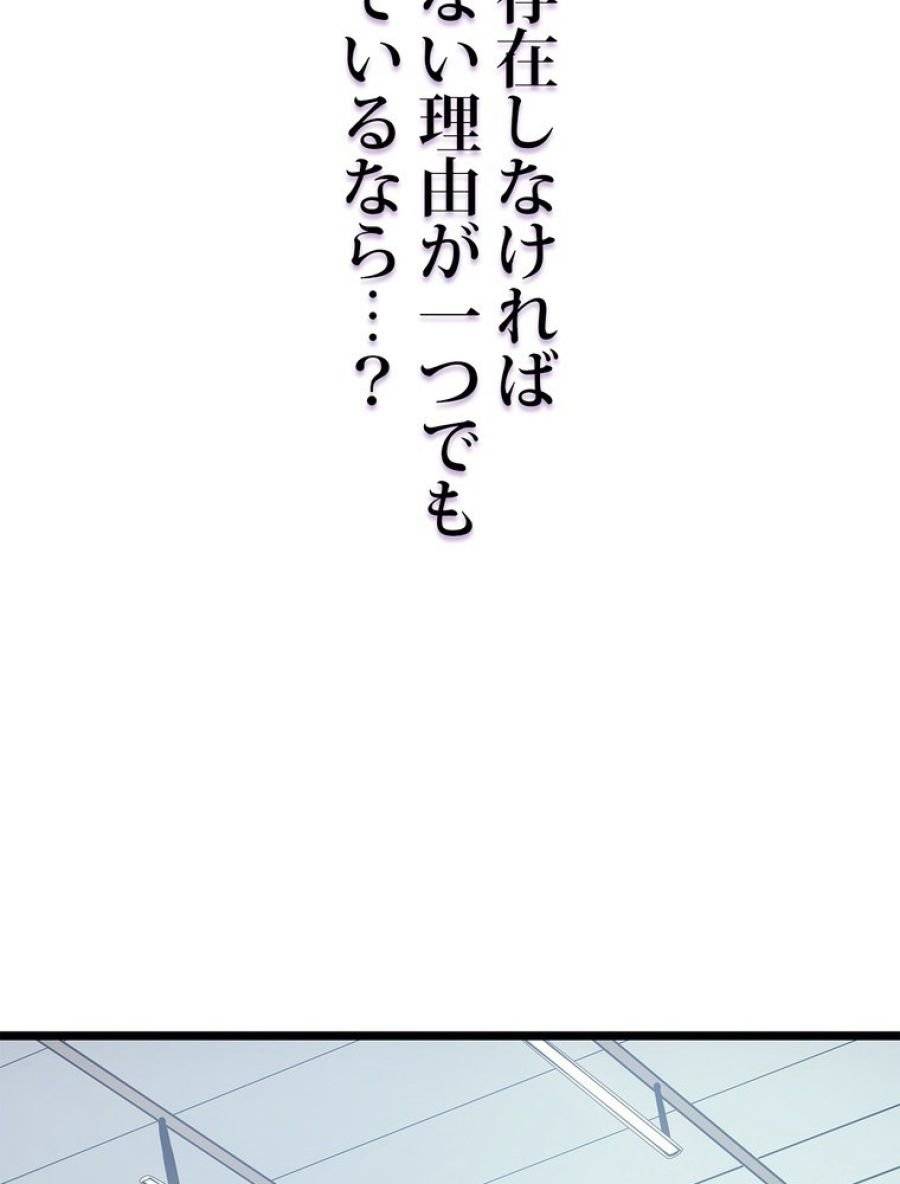 存在しなければ
ない理由が一つでも
ているなら…？